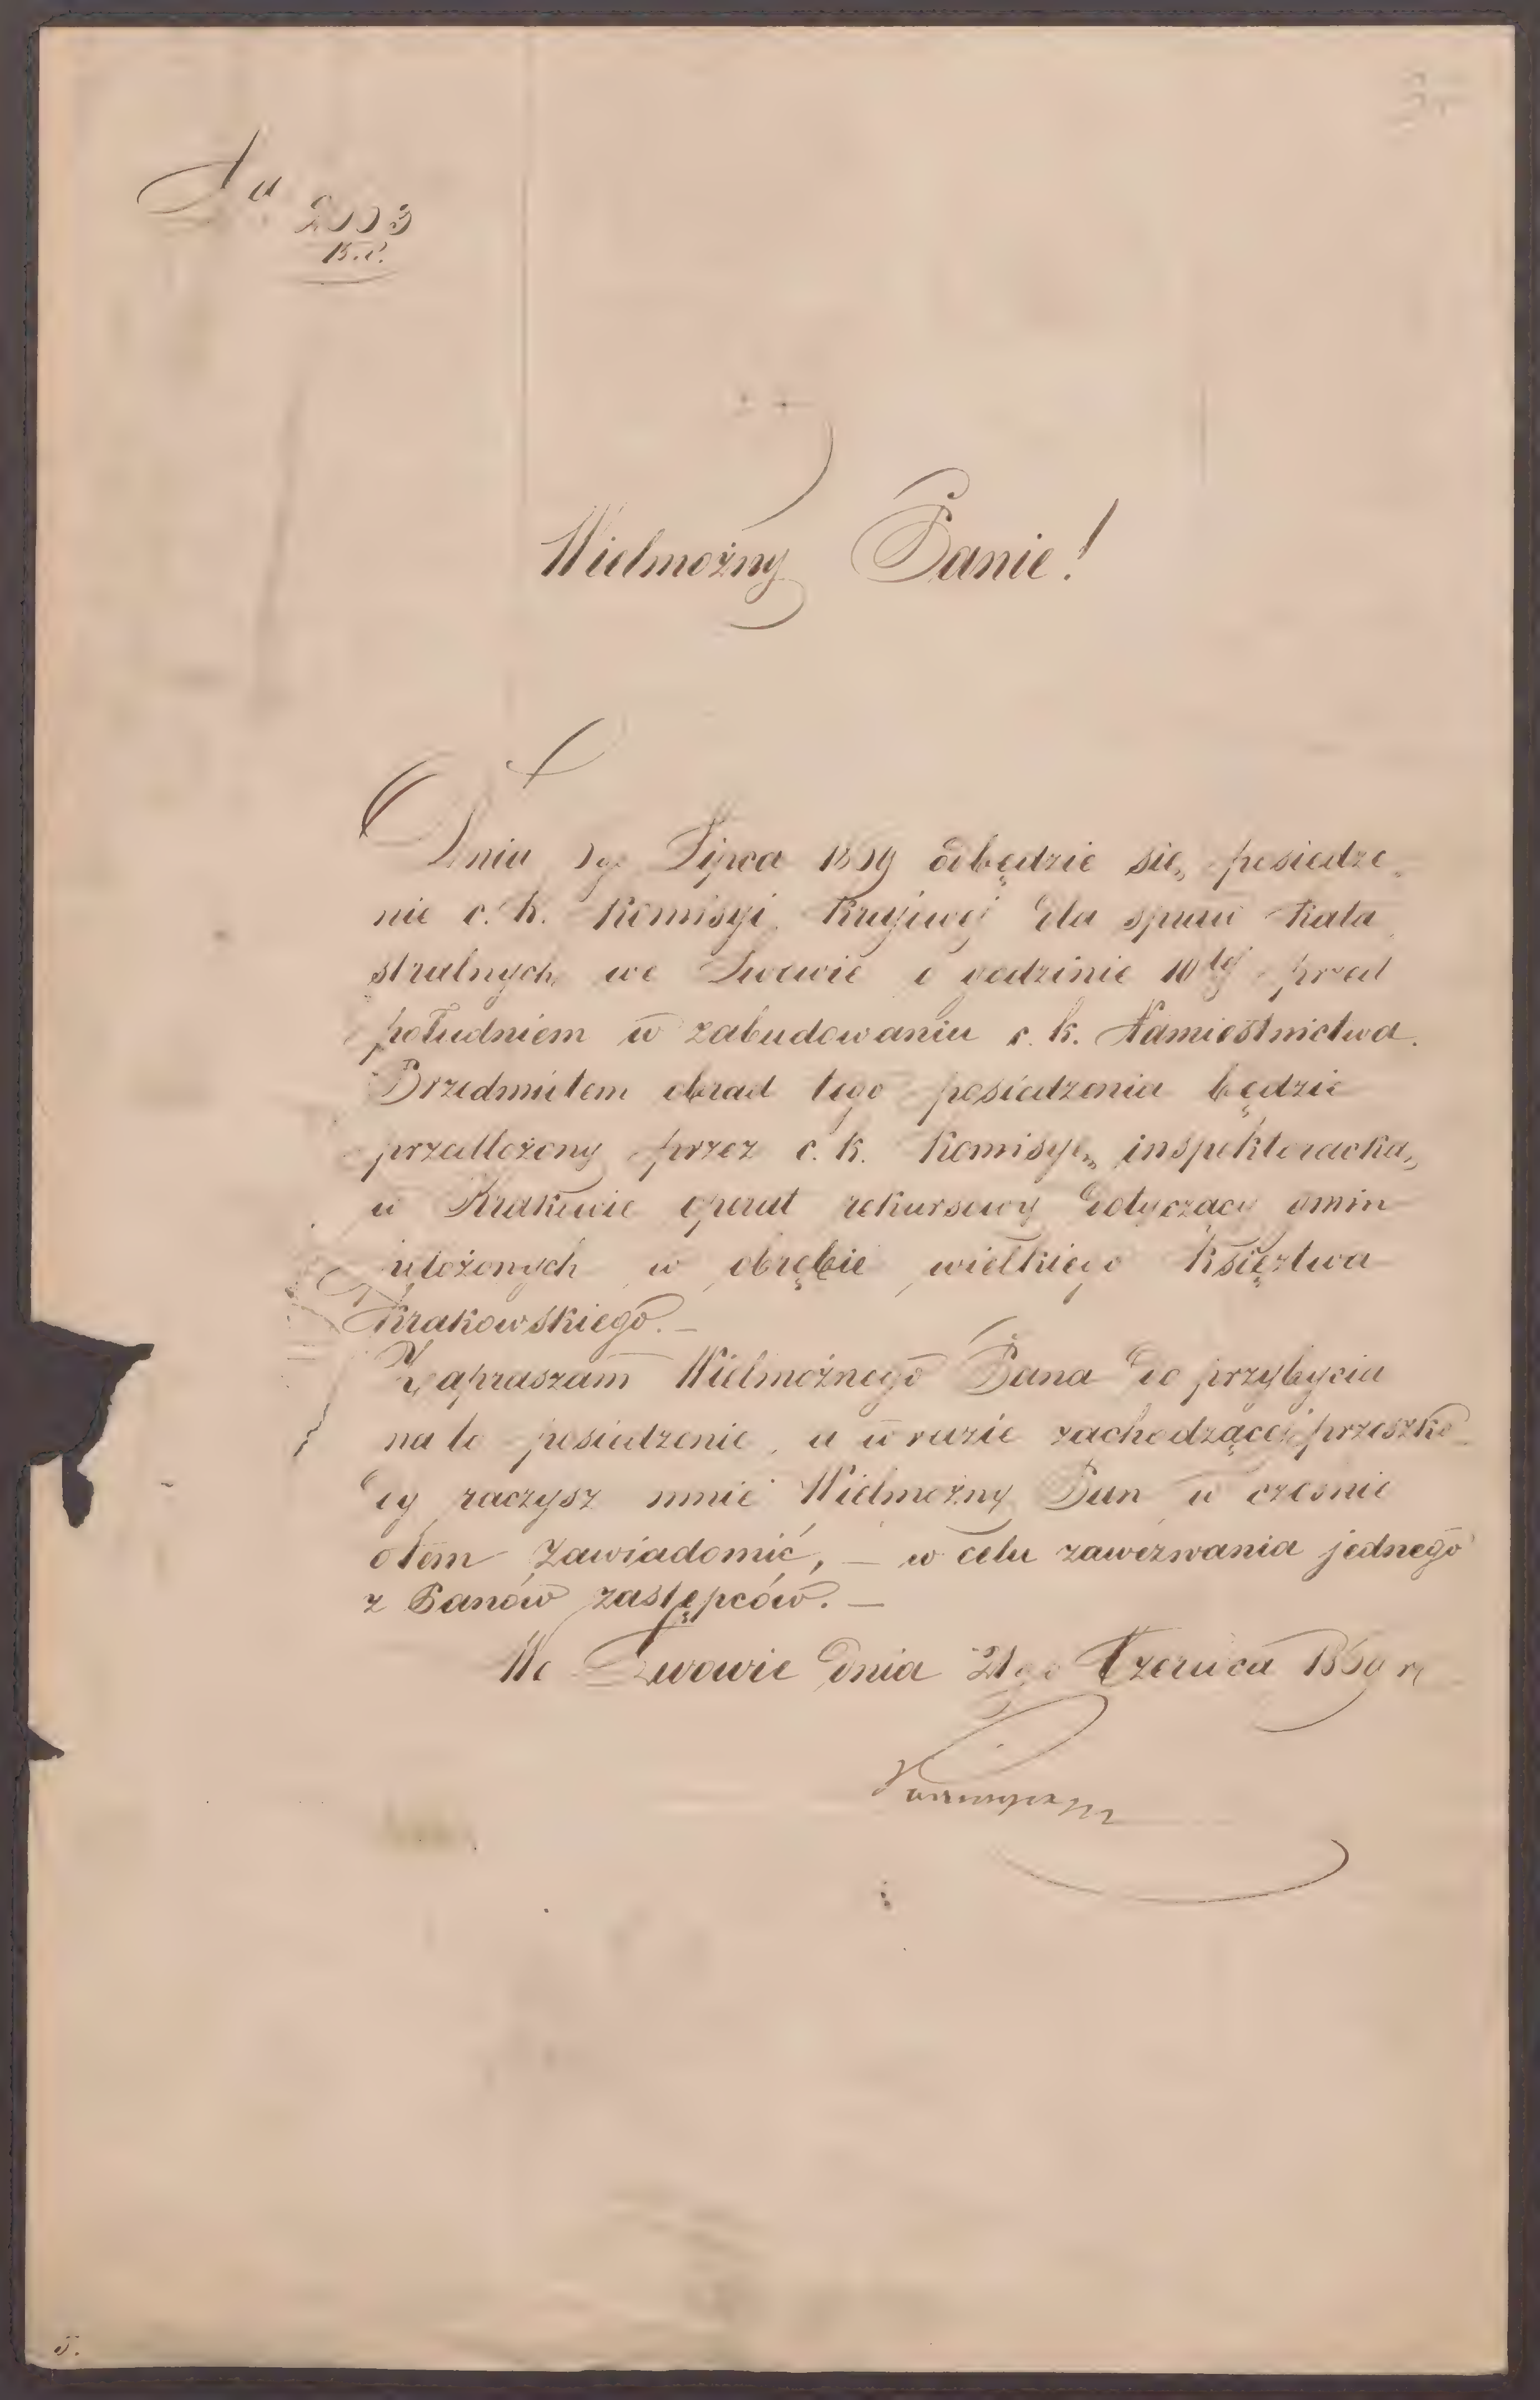 Ad 2003
Wielmożny Panie!
Dnia Lipca 1859 odbędzie się posiedze„
nie c. k. Komisyi Krajowéj dla spraw kata„
stralnych we Lwowie o godzinie 10téj przed
południem w zabudowaniu c. k. Namiestnictwa.
Przedmiotem obrad tego posiedzenia będzie
przedłożony przez c. k. Komisyę inspektoracką
w Krakowie operat rekursowy dotyczący gmin
położonych w obrębie wielkiego Księztwa
Krakowskiego. —
Zapraszam Wielmożnego Pana do przybycia
na to posiedzenie, a w razie zachodzącéj przeszko„
dy raczysz mnie Wielmożny Pan w cześnie
otem zawiadomić, — w celu zawezwania jednego
z Panów zastępców. —
We Lwowie dnia 21go Czerwca 1859 r.